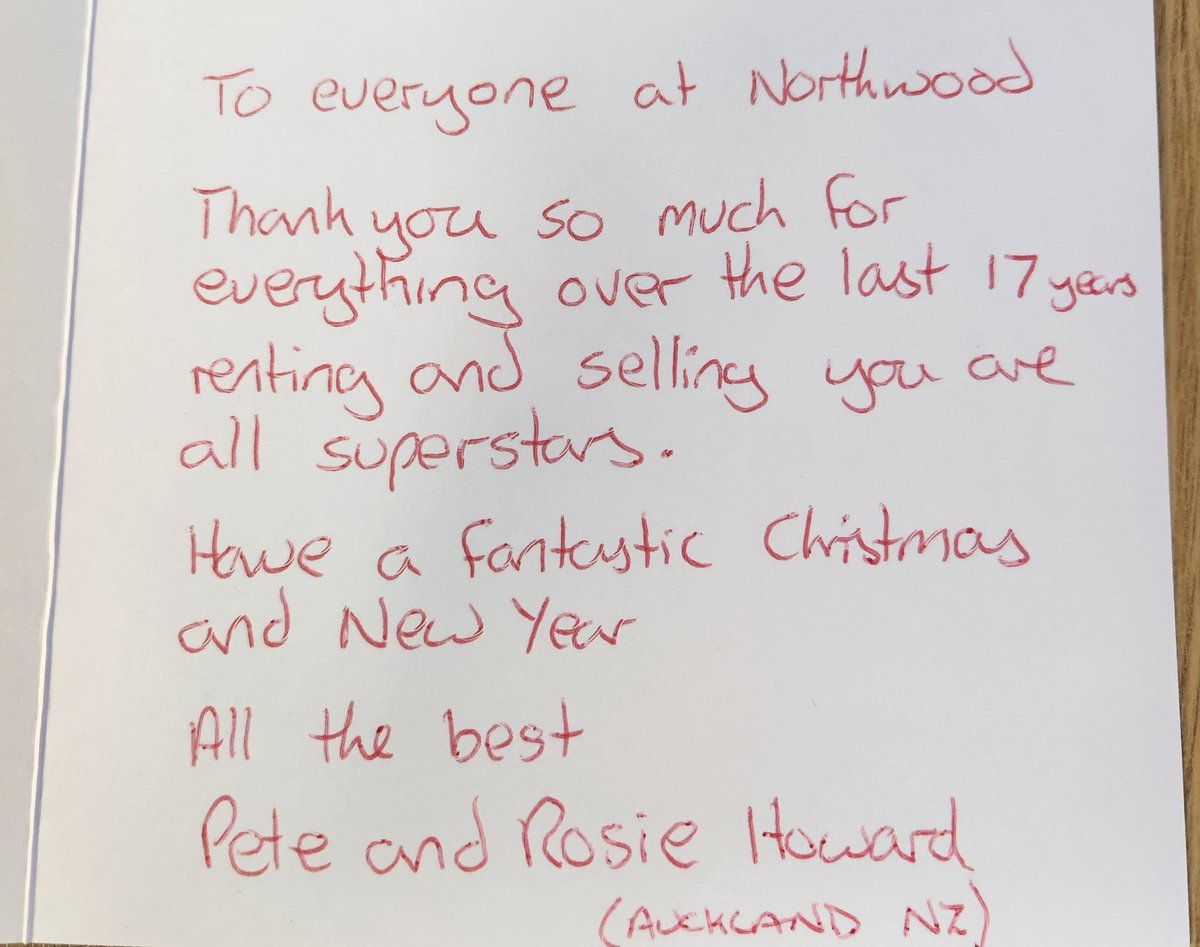 To everyone at Northwood
Thank you so much for
everything over the last 17 years
renting and selling you are
all superstars.
Have a fantastic Christmas
and New Year
All the best
Pete and Rosie Howard
(AUCKLAND NZ)